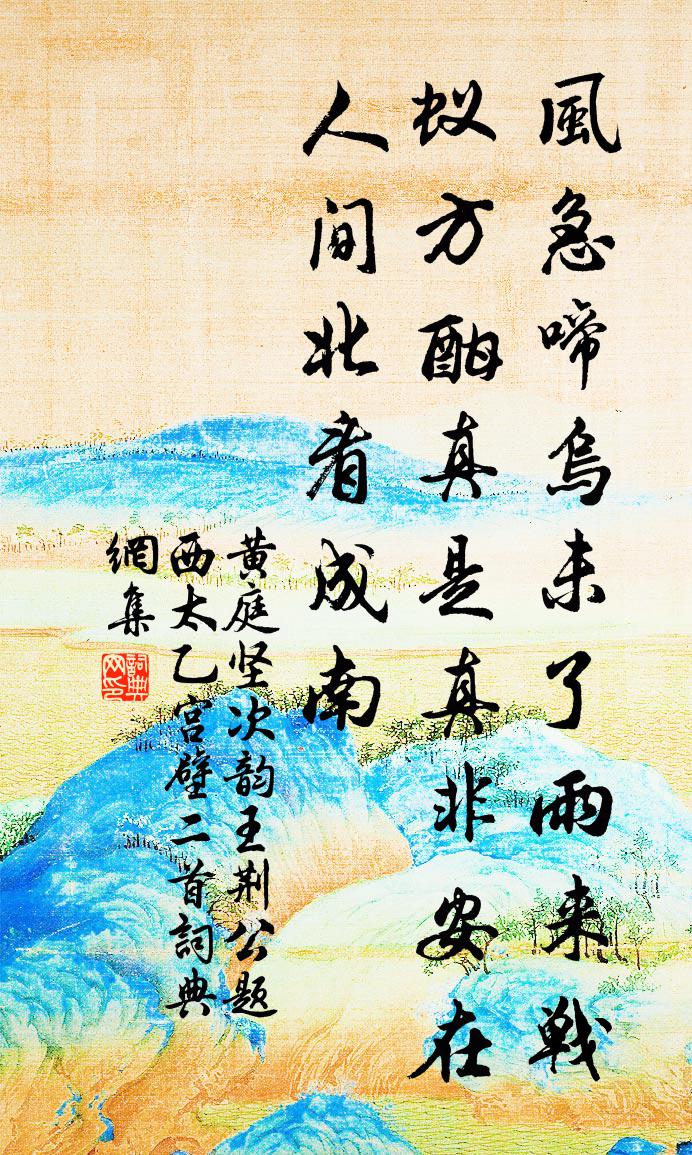 風急啼烏未了雨来戦
蚁方酣真是真非安在
人间北看成南
黄庭坚次韵王荆公题
西太乙宫壁二首詞典
網集
詞典
网印